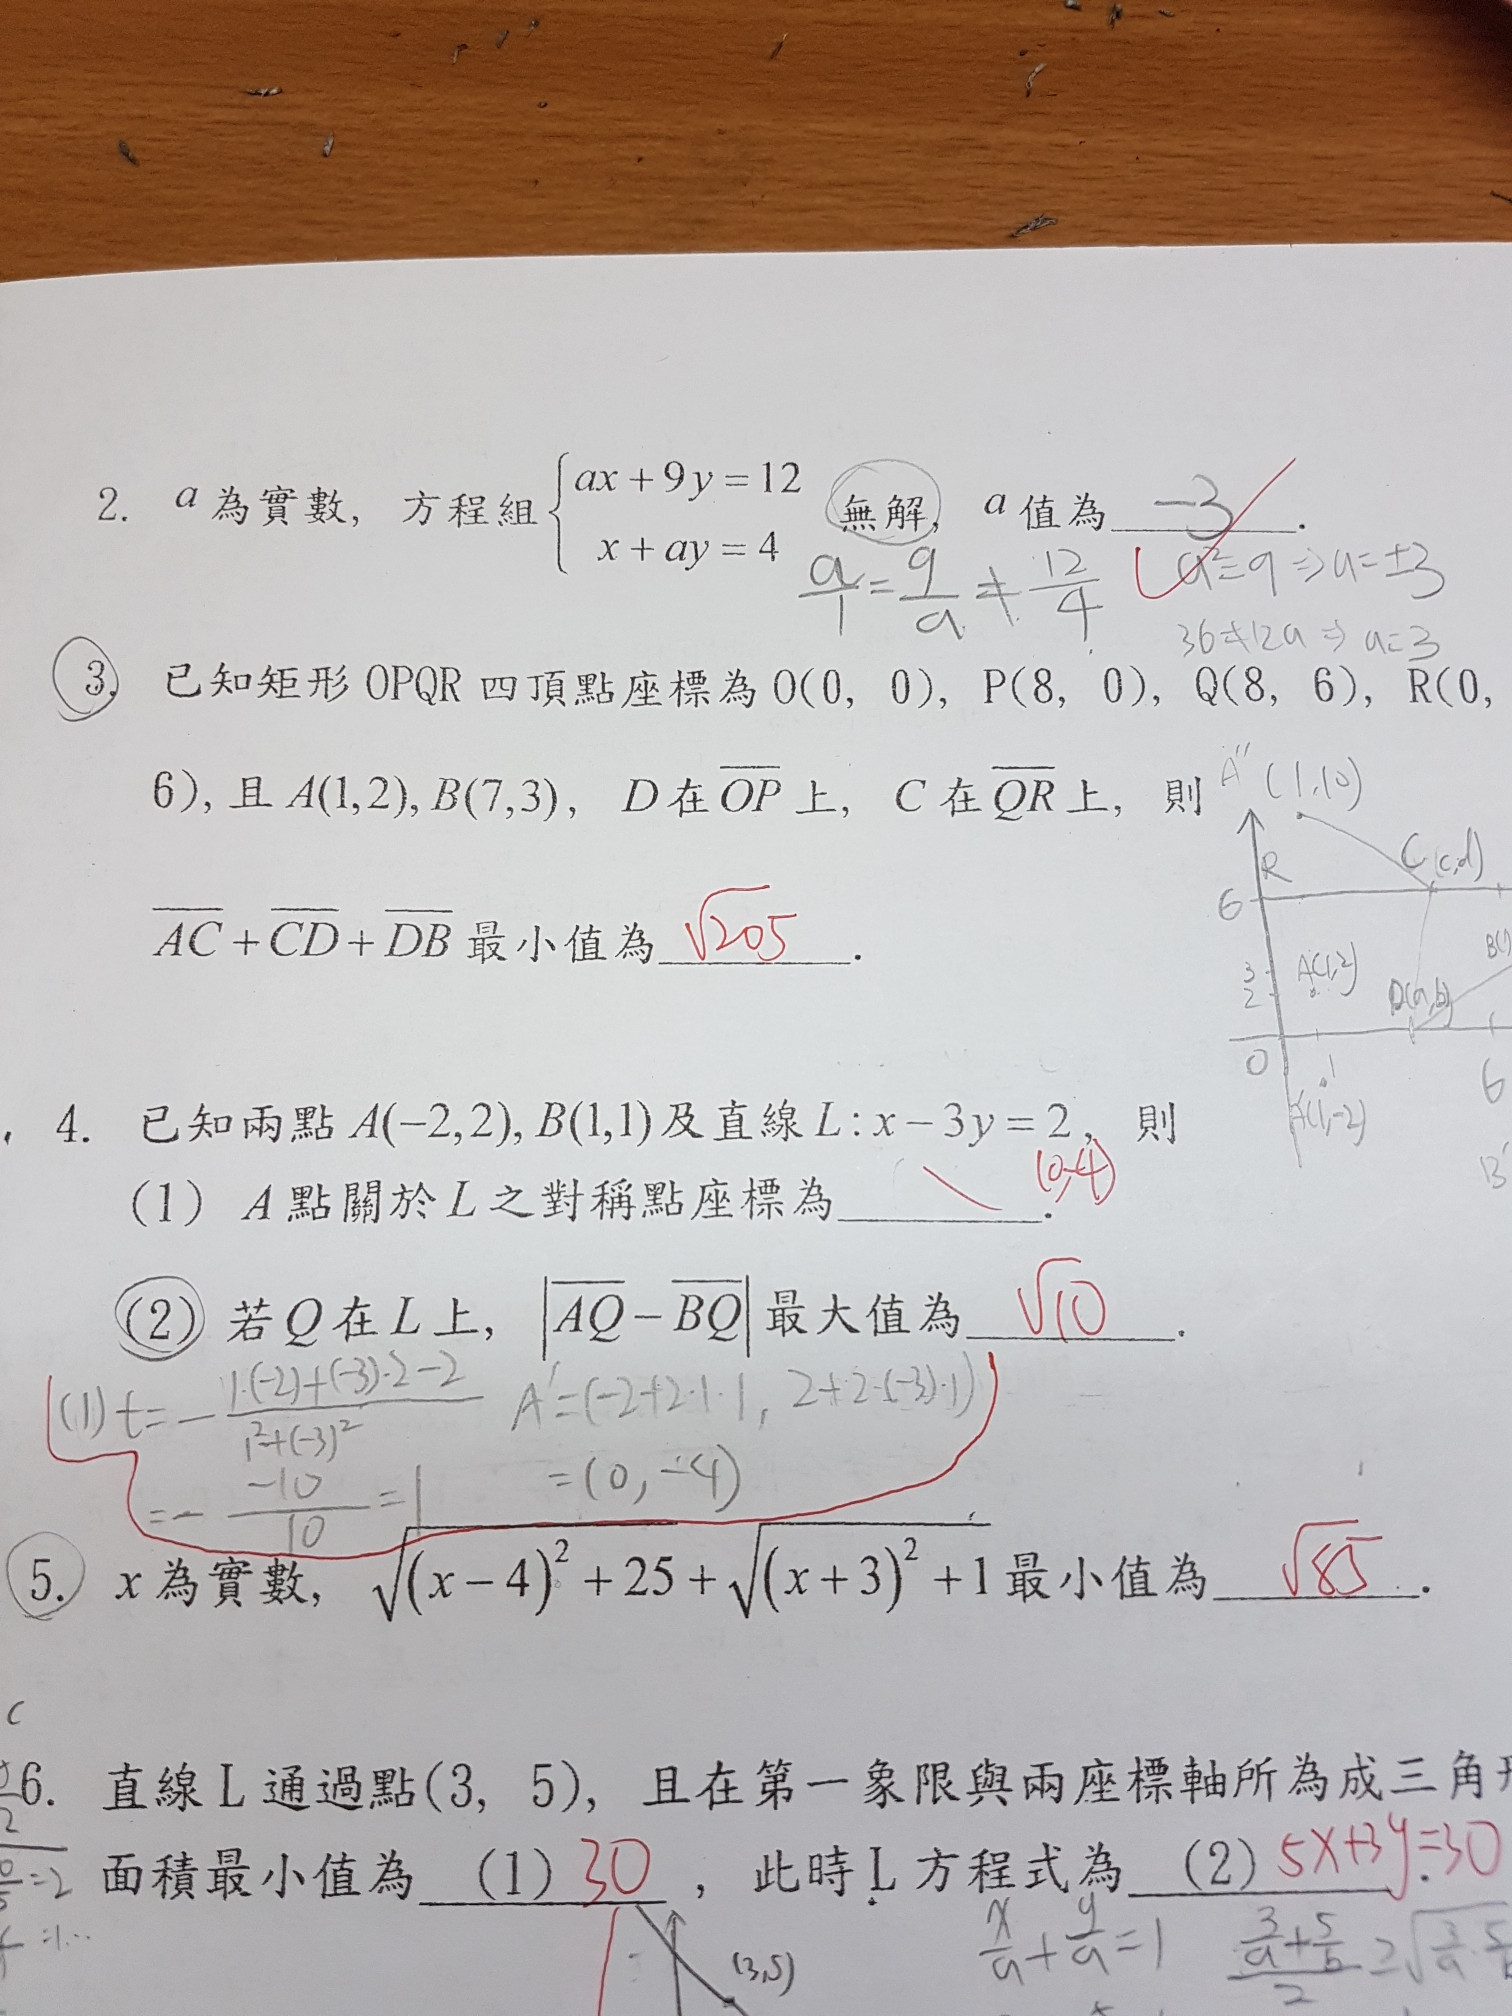 2. a為實數, 方程組 { ax+9y=12 無解, a值為 -3 .
x+ay=4
a/1 = 9/a ≠ 12/4 a²=9⇒a=±3
36≠12a⇒a=3
3. 已知矩形 OPQR 四頂點座標為 O(0, 0), P(8, 0), Q(8, 6), R(0,
6), 且 A(1,2), B(7,3), D 在 OP 上, C 在 QR 上, 則
A''(1,10)
R C(c,d)
6
AC+CD+DB 最小值為 √205 .
3
2
A(1,2) D(a,b)
0 1 6
(1,-2)
B'
4. 已知兩點 A(-2,2), B(1,1) 及直線 L: x-3y=2, 則
(1) A 點關於 L 之對稱點座標為 (0,-4) .
(2) 若 Q 在 L 上, |AQ-BQ| 最大值為 √10 .
(1) t=- 1·(-2)+(-3)·2-2 / 1²+(-3)² A'=(-2+2·1·1, 2+2·(-3)·1)
=- -10/10 =1 =(0,-4)
5. x 為實數, √((x-4)²+25)+√((x+3)²+1) 最小值為 √85 .
6. 直線 L 通過點(3, 5), 且在第一象限與兩座標軸所為成三角形
面積最小值為 (1) 30 , 此時 L 方程式為 (2) 5x+3y=30 .
(3,5) x/a + y/a =1